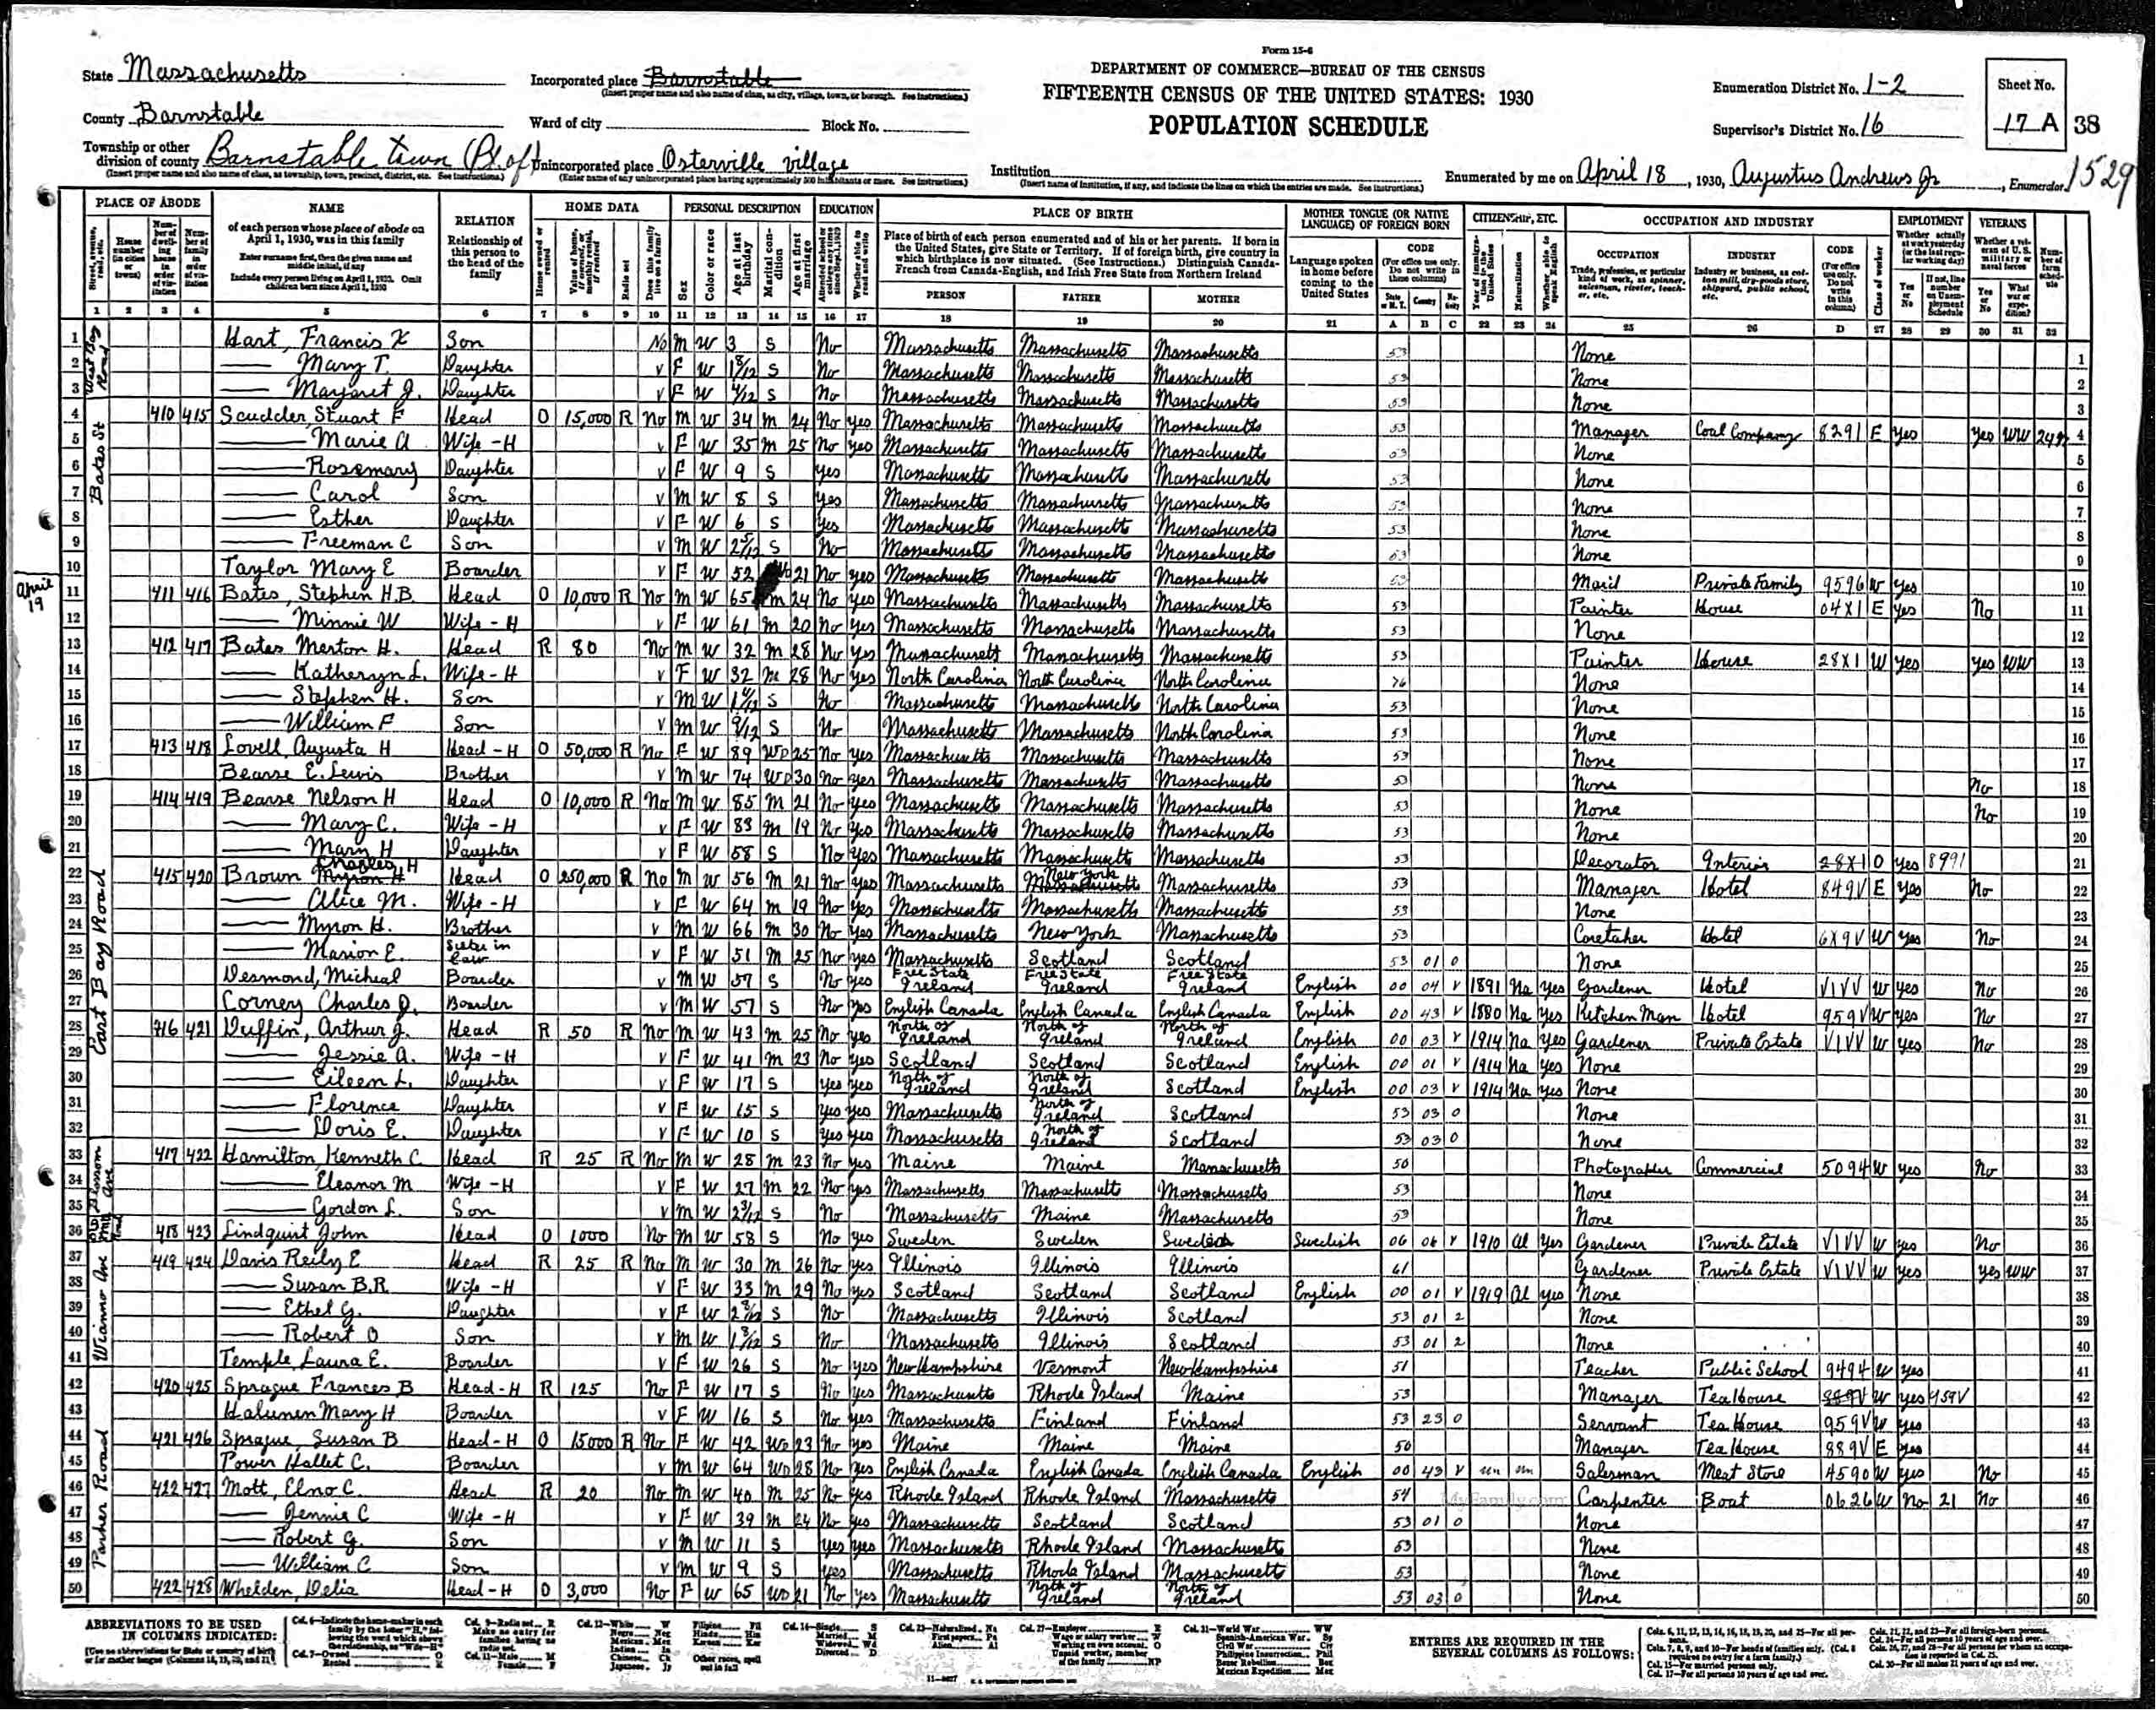 Form 15-6
State Massachusetts
Incorporated place Barnstable
(Insert proper name and also name of class, as city, village, town, or borough. See Instructions.)
DEPARTMENT OF COMMERCE—BUREAU OF THE CENSUS
Enumeration District No. 1-2
Sheet No.
County Barnstable
Ward of city
Block No.
FIFTEENTH CENSUS OF THE UNITED STATES: 1930
POPULATION SCHEDULE
Supervisor's District No. 16
17 A
38
Township or other division of county Barnstable town (Pt. of)
Unincorporated place Osterville village
Institution
Enumerated by me on April 18, 1930, Augustus Andrews Jr, Enumerator
1529
PLACE OF ABODE NAME RELATION HOME DATA PERSONAL DESCRIPTION EDUCATION PLACE OF BIRTH MOTHER TONGUE (OR NATIVE LANGUAGE) OF FOREIGN BORN CITIZENSHIP, ETC. OCCUPATION AND INDUSTRY EMPLOYMENT VETERANS
of each person whose place of abode on April 1, 1930, was in this family
Enter surname first, then the given name and middle initial, if any
Include every person living on April 1, 1930. Omit children born since April 1, 1930
Relationship of this person to the head of the family
Place of birth of each person enumerated and of his or her parents. If born in the United States, give State or Territory. If of foreign birth, give country in which birthplace is now situated. (See Instructions.) Distinguish Canada-French from Canada-English, and Irish Free State from Northern Ireland
PERSON FATHER MOTHER
Language spoken in home before coming to the United States
CODE
OCCUPATION INDUSTRY CODE
West Bay Road
1 Hart, Francis X Son No M W 3 S No Massachusetts Massachusetts Massachusetts 53 None 1
2 Mary T. Daughter V F W 1 8/12 S No Massachusetts Massachusetts Massachusetts 53 None 2
3 Margaret J. Daughter V F W 4/12 S No Massachusetts Massachusetts Massachusetts 53 None 3
Bates St
4 410 415 Scudder, Stuart F Head O 15,000 R No M W 34 M 24 No Yes Massachusetts Massachusetts Massachusetts 53 Manager Coal Company 8291 E Yes Yes WW 4
5 Marie A Wife-H V F W 35 M 25 No Yes Massachusetts Massachusetts Massachusetts 53 None 5
6 Rosemary Daughter V F W 9 S Yes Massachusetts Massachusetts Massachusetts 53 None 6
7 Carol Son V M W 8 S Yes Massachusetts Massachusetts Massachusetts 53 None 7
8 Esther Daughter V F W 6 S Yes Massachusetts Massachusetts Massachusetts 53 None 8
9 Freeman C Son V M W 2 5/12 S No Massachusetts Massachusetts Massachusetts 53 None 9
10 Taylor Mary E Boarder V F W 52 21 No Yes Massachusetts Massachusetts Massachusetts 53 Maid Private Family 9596 W Yes 10
April 19
11 411 416 Bates, Stephen H.B. Head O 10,000 R No M W 65 M 24 No Yes Massachusetts Massachusetts Massachusetts 53 Painter House 04X1 E Yes No 11
12 Minnie W Wife-H V F W 61 M 20 No Yes Massachusetts Massachusetts Massachusetts 53 None 12
13 412 417 Bates Merton H. Head R 80 No M W 32 M 28 No Yes Massachusetts Massachusetts Massachusetts 53 Painter House 28X1 W Yes Yes WW 13
14 Katheryn L. Wife-H V F W 32 M 28 No Yes North Carolina North Carolina North Carolina 76 None 14
15 Stephen H. Son V M W S No Massachusetts Massachusetts North Carolina 53 None 15
16 William F Son V M W 9/12 S No Massachusetts Massachusetts North Carolina 53 None 16
17 413 418 Lovell, Augusta H Head-H O 50,000 R No F W 89 Wd 25 No Yes Massachusetts Massachusetts Massachusetts 53 None 17
18 Bearse E. Lewis Brother V M W 74 Wd 30 No Yes Massachusetts Massachusetts Massachusetts 53 None No 18
19 414 419 Bearse Nelson H Head O 10,000 R No M W 85 M 21 No Yes Massachusetts Massachusetts Massachusetts 53 None No 19
20 Mary C. Wife-H V F W 83 M 19 No Yes Massachusetts Massachusetts Massachusetts 53 None 20
21 Mary H Daughter V F W 58 S No Yes Massachusetts Massachusetts Massachusetts 53 Decorator Interior 28X1 O Yes 8991 21
East Bay Road
22 415 420 Brown Myron H Charles H Head O 250,000 R No M W 56 M 21 No Yes Massachusetts Massachusetts New York Massachusetts 53 Manager Hotel 849V E Yes No 22
23 Alice M. Wife-H V F W 64 M 19 No Yes Massachusetts Massachusetts Massachusetts 53 None 23
24 Myron H. Brother V M W 66 M 30 No Yes Massachusetts New York Massachusetts 53 Caretaker Hotel 6X9V W Yes No 24
25 Marion E. Sister in law V F W 51 M 25 No Yes Massachusetts Scotland Scotland 53 01 0 None 25
26 Desmond, Micheal Boarder V M W 57 S No Yes Free State Ireland Free State Ireland Free State Ireland English 00 04 V 1891 Na Yes Gardener Hotel VIVV W Yes No 26
27 Corney Charles J. Boarder V M W 57 S No Yes English Canada English Canada English Canada English 00 43 V 1880 Na Yes Kitchen Man Hotel 959V W Yes No 27
28 416 421 Duffin, Arthur J. Head R 50 R No M W 43 M 25 No Yes North of Ireland North of Ireland North of Ireland English 00 03 V 1914 Na Yes Gardener Private Estate VIVV W Yes No 28
29 Jessie A. Wife-H V F W 41 M 23 No Yes Scotland Scotland Scotland English 00 01 V 1914 Na Yes None 29
30 Eileen L. Daughter V F W 17 S Yes Yes North of Ireland North of Ireland Scotland English 00 03 V 1914 Na Yes None 30
31 Florence Daughter V F W 15 S Yes Yes Massachusetts North of Ireland Scotland 53 03 0 None 31
32 Doris E. Daughter V F W 10 S Yes Yes Massachusetts North of Ireland Scotland 53 03 0 None 32
33 417 422 Hamilton, Kenneth C. Head R 25 R No M W 28 M 23 No Yes Maine Maine Massachusetts 50 Photographer Commercial 5094 W Yes No 33
34 Eleanor M Wife-H V F W 27 M 22 No Yes Massachusetts Massachusetts Massachusetts 53 None 34
35 Gordon L. Son V M W S No Massachusetts Maine Massachusetts 53 None 35
36 418 423 Lindquist John Head O 1000 No M W 58 S No Yes Sweden Sweden Sweden Swedish 06 06 V 1910 Al Yes Gardener Private Estate VIVV W Yes No 36
Wianno Ave
37 419 424 Davis Reily E Head R 25 R No M W 30 M 26 No Yes Illinois Illinois Illinois 61 Gardener Private Estate VIVV W Yes Yes WW 37
38 Susan B.R. Wife-H V F W 33 M 29 No Yes Scotland Scotland Scotland English 00 01 V 1919 Al Yes None 38
39 Ethel G. Daughter V F W S No Massachusetts Illinois Scotland 53 01 2 None 39
40 Robert O Son V M W S No Massachusetts Illinois Scotland 53 01 2 None 40
41 Temple, Laura E. Boarder V F W 26 S No Yes New Hampshire Vermont New Hampshire 51 Teacher Public School 9494 W Yes 41
42 420 425 Sprague Frances B Head-H R 125 No F W 17 S No Yes Massachusetts Rhode Island Maine 53 Manager Tea House W Yes 42
43 Halunen Mary H Boarder V F W 16 S No Yes Massachusetts Finland Finland 53 23 0 Servant Tea House 959V W Yes 43
Parker Road
44 421 426 Sprague, Susan B Head-H O 15000 R No F W 42 Wd 23 No Yes Maine Maine Maine 50 Manager Tea House 889V E Yes 44
45 Power Hallet C. Boarder V M W 64 Wd 28 No Yes English Canada English Canada English Canada English 00 43 V un un Salesman Meat Store 4590 W Yes No 45
46 422 427 Mott, Elno C. Head R 20 No M W 40 M 25 No Yes Rhode Island Rhode Island Massachusetts 54 Carpenter Boat 0626 W No 21 No 46
MyFamily.com
47 Jennie C Wife-H V F W 39 M 24 No Yes Massachusetts Scotland Scotland 53 01 0 None 47
48 Robert G. Son V M W 11 S Yes Yes Massachusetts Rhode Island Massachusetts 53 None 48
49 William C Son V M W 9 S Yes Massachusetts Rhode Island Massachusetts 53 None 49
50 422 428 Whelden, Delia Head-H O 3,000 No F W 65 Wd 21 No Yes Massachusetts North of Ireland North of Ireland 53 03 0 None 50
ABBREVIATIONS TO BE USED IN COLUMNS INDICATED:
ENTRIES ARE REQUIRED IN THE SEVERAL COLUMNS AS FOLLOWS: